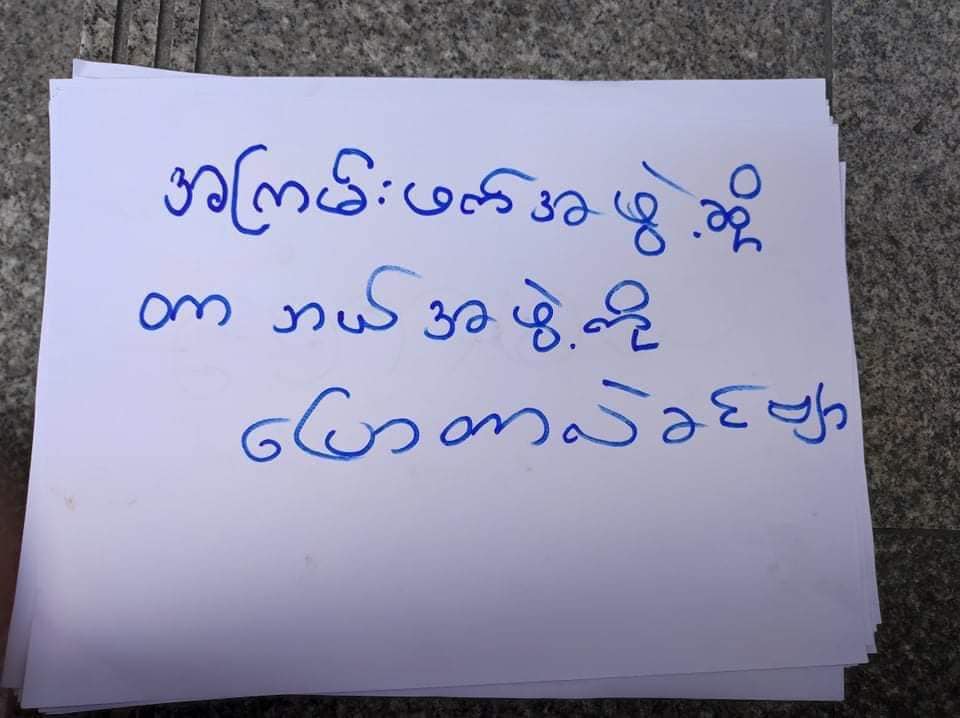 အကြမ်းဖက်အဖွဲ့ဆို
တာ ဘယ်အဖွဲ့ကို
ပြောတာလဲခင်ဗျာ